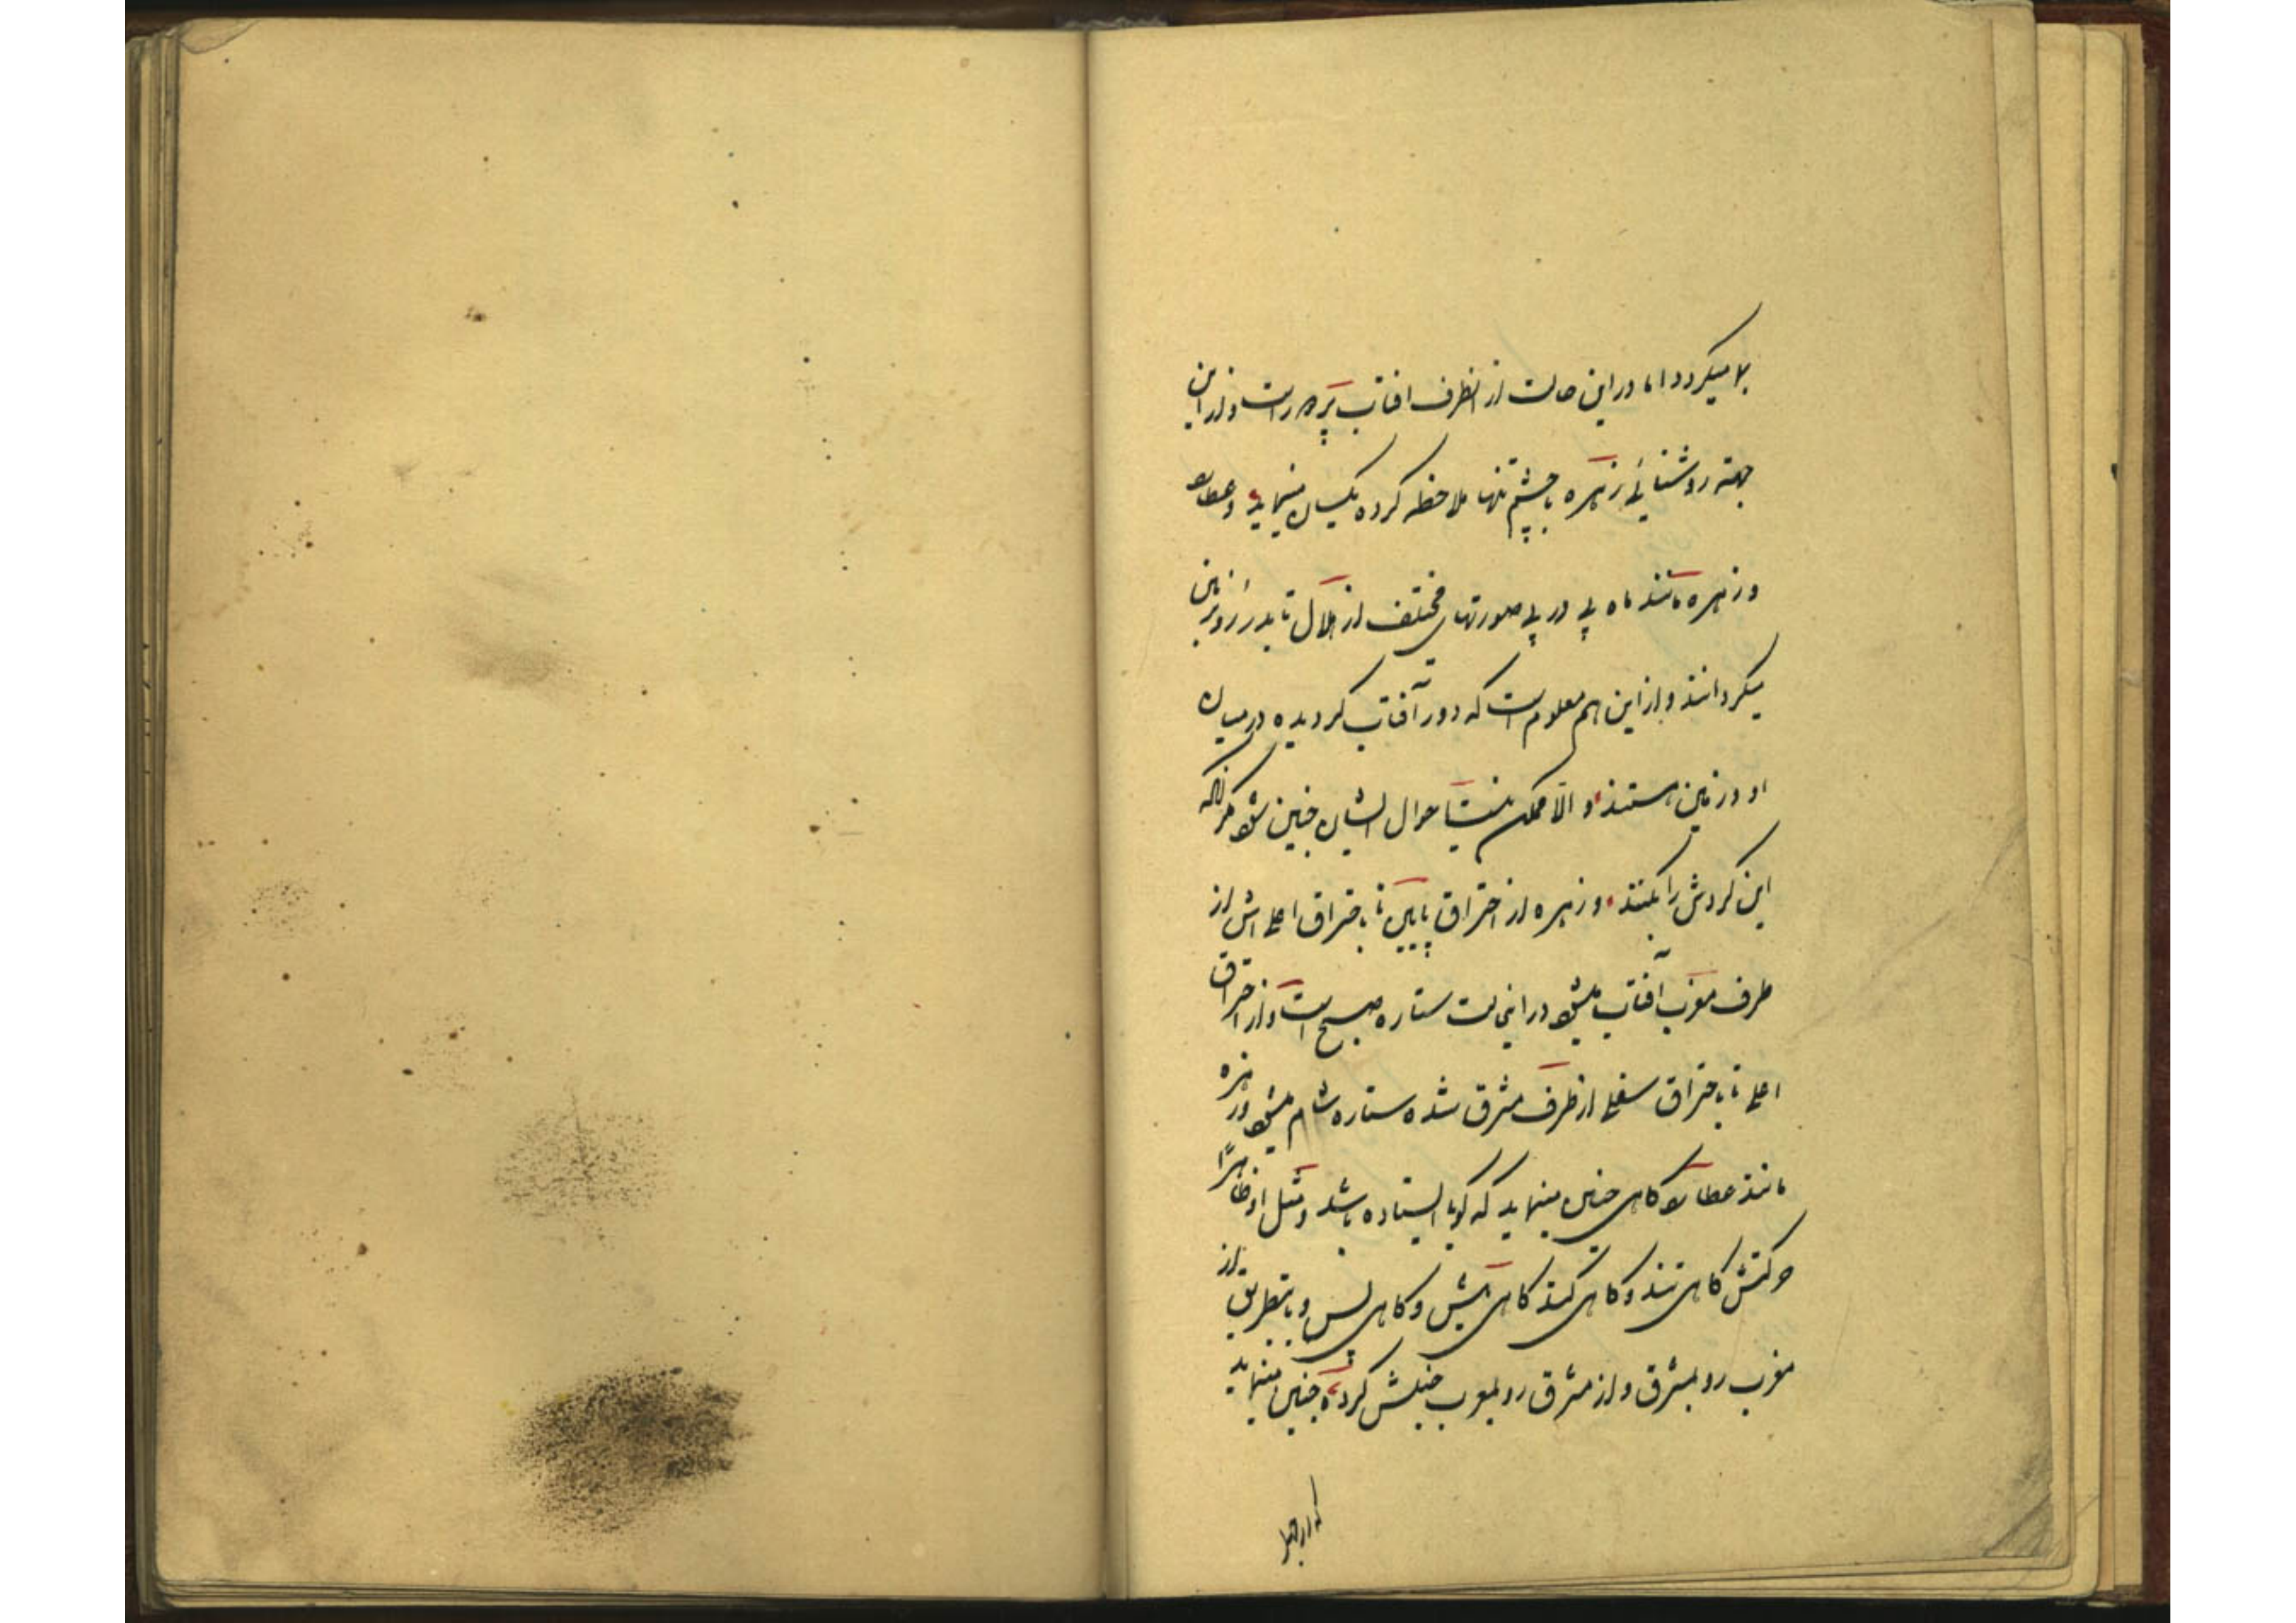 میکردد اما در این حالت از انظرف افتاب پردور است و از این
جهته روشنائی زهره با چشم تنها ملاحظه کرده یکسان مینماید و عطارد
و زهره مانند ماه پی در پی صورتهای مختلف از هلال تا بدر رو بزمین
میکردانند و از این هم معلوم است که دور آفتاب کردیده در میان
او و زمین هستند و الا ممکن نیست احوال ایشان چنین شود مکر انکه
این کردش را بکنند و زهره از احتراق پایین تا باحتراق اعلی اش از
طرف مغرب آفتاب میشود در اینحالت ستاره صبح است و از احتراق
اعلی تا باحتراق سفلی از طرف مشرق شده ستاره شام میشود و زهره
مانند عطارد کاهی چنین مینماید که کویا ایستاده باشد و مثل او ظاهراً
حرکتش کاهی تند و کاهی کند کاهی پیش و کاهی پس و باینطریق از
مغرب رو بمشرق و از مشرق رو بمغرب جنبش کرده چنین مینماید
که از